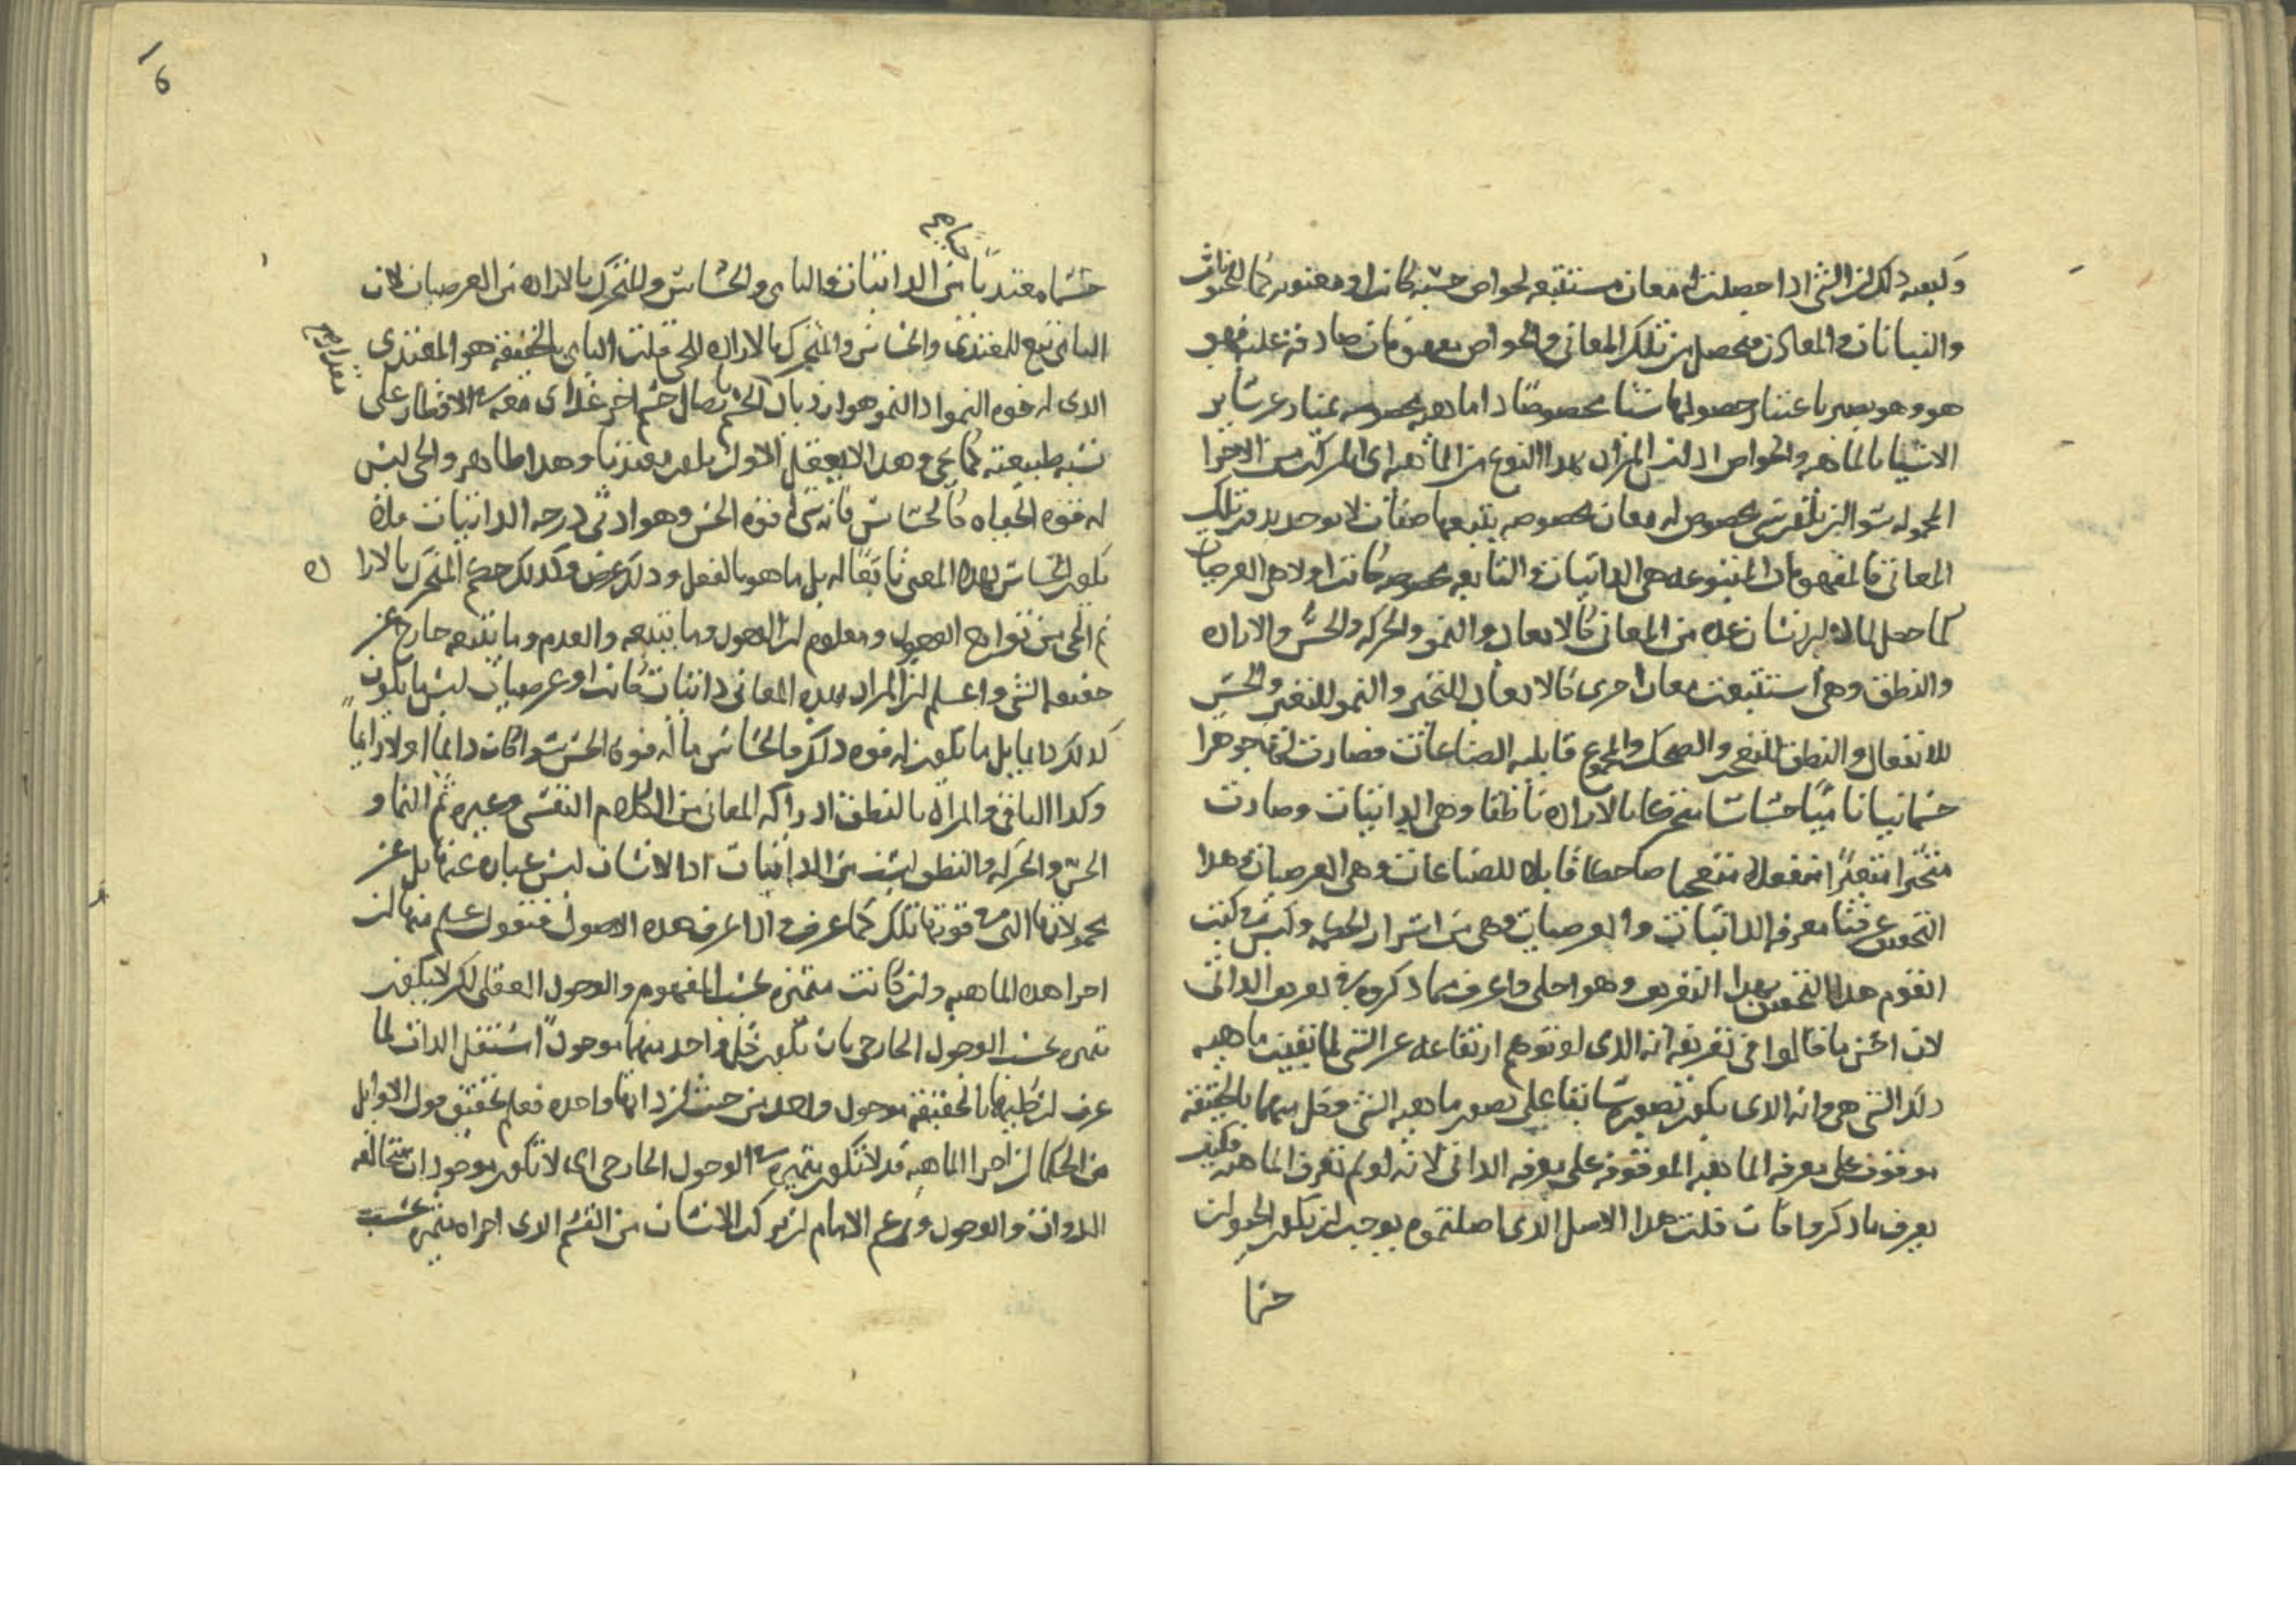 وكيفيه ذلك ان الشى اذا حصلت له معان مستتبعه لخواص حسيه كانت او معنويه كما للحيوانات
والنباتات والمعادن فيحصل من تلك المعانى والخواص مفهومات صادقه عليه فهو
هو وهو يصير باعتبار حصولها شيا مخصوصا ذا ماهيه مخصوصه يمتاز عن ساير
الاشيا بالماهيه والخواص اذ ليس المراد بهذا النوع من الماهيه اى المركبه من الاجزا
المحموله سوا ان يكون شى مخصوص له معان مخصوصه يتبعها صفات لا يوجد بدون تلك
المعانى فالمفهومات المتبوعه هى الذاتيات والتابعه مخصوصه كانت او لا هى العرضيات
كما حصل لماده الانسان عده من المعانى كالابعاد والنمو والحركه والحس والاراده
والنطق وهى استتبعت معان اخرى كالابعاد للتحيز والنمو للتغير والحس
للانفعال والنطق للتعجب والضحك والمجموع قابليه الصناعات فصارت لها جوهرا
جسمانيا ناميا حساسا متحركا بالاراده ناطقا وهى الذاتيات وصارت
متحيزا متغيرا منفعلا متعجبا ضاحكا قابلا للصناعات وهى العرضيات وهذا
التحقيق عرفنا معرفه الذاتيات والعرضيات وهى من اسرار الحكمه وليس فى كتب
القوم هذا التحقيق بهذا التعريف وهو اجلى واعرف مما ذكروه فى تعريف الذاتى
لان احسن ما قالوا فى تعريفه انه الذى لو توهم ارتفاعه عن الشى لما بقيت ماهيه
ذلك الشى هى وانه الذى يكون تصوره سابقا على تصور ماهيه الشى وكل منهما بالحقيقه
موقوف على معرفه الماهيه الموقوفه على معرفه الذاتى لانه لو لم تعرف الماهيه فكيف
يعرف ما ذكروا فان قلت هذا الاصل الذى اصلتموه يوجب ان يكون الحيوان
جسما
6
جسما مغتذيا من الذاتيات والنامى والحساس والمتحرك بالاراده من العرضيات لان
النامى تبع للمغتذى والحساس والمتحرك بالاراده للحى قلت النامى بالحقيقه هو المغتذى
الذى له قوه النمو اذ النمو هو ازدياد الجسم باتصال جسم اخر غذائى معه فى الاقطار على
نسبه طبيعته كما يجى وهذا لا يعقل الا وان يكون مغتذيا وهذا ظاهر والحى ليس
له قوه الحياه كالحساس فانه شى له قوه الحس وهو ادنى درجه الذاتيات فلا
يكون الحساس بهذا المعنى تابعا له بل ما هو بالفعل وذلك عرض وكذلك حكم المتحرك بالاراده
ثم الحى من توابع الوجود ومعلوم ان الوجود وما يتبعه والعدم وما يتبعه خارج عن
حقيقه الشى واعلم ان المراد بهذه المعانى ذاتيات كانت او عرضيات ليس ما يكون
كذلك دايما بل ما يكون له قوه ذلك فالحساس ما له قوه الحس سوا كان دايما او لا دايما
وكذا الباقى والمراد بالنطق ادراك المعانى من الكلام النفسى وغيره ثم النما و
الحس والحركه والنطق ليست من الذاتيات اذ الانسان ليس عباره عنها بل عن
محمولاتها التى فى قوتها تلك كما عرف واذا عرف هذه الاصول فنقول علم منها ان
اجزا هذه الماهيه وان كانت متميزه بحسب المفهوم والوجود العقلى لكن لا يكون
تميزه بحسب الوجود الخارجى بان يكون كل واحد منهما موجودا مستقل الذات لما
عرف ان كليهما بالحقيقه موجود واحد من حيث ان ذاتها واحده فعلم تحقيق قول الاوايل
من الحكما ان اجزا الماهيه قد لا تكون متميزه فى الوجود الخارجى اى لا تكون موجودات متخالفه
الذوات والوجود وزعم الامام ان تركب الانسان من القسم الذى اجزاه متميزه بحسب